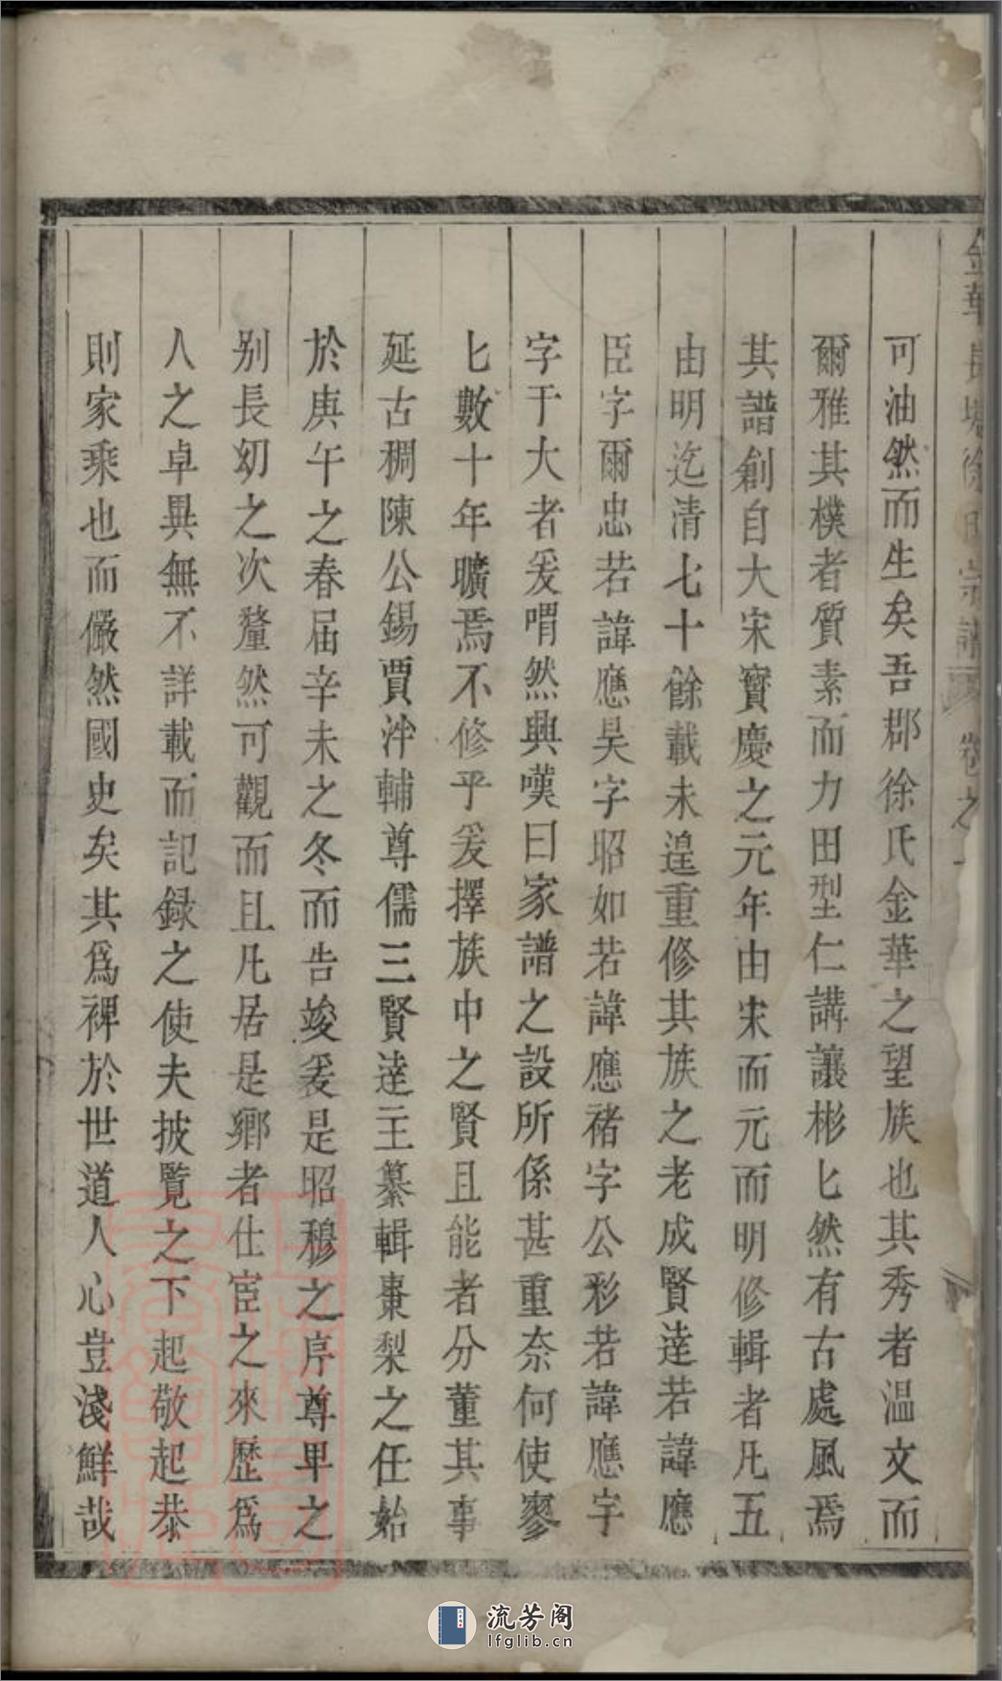 可油然而生矣吾郡徐氏金華之望族也其秀者溫文而
爾雅其樸者質素而力田型仁講讓彬匕然有古處風焉
其譜創自大宋寶慶之元年由宋而元而明修輯者凡五
由明迄清七十餘載未遑重修其族之老成賢達若諱應
臣字爾忠若諱應昊字昭如若諱應褚字公彩若諱應宇
字于大者爰喟然興嘆曰家譜之設所係甚重奈何使寥
匕數十年曠焉不修乎爰擇族中之賢且能者分董其事
延古稠陳公錫賈泮輔尊儒三賢達主纂輯棗梨之任始
於庚午之春屆辛未之冬而告竣爰是昭穆之序尊卑之
别長幼之次釐然可觀而且凡居是鄉者仕宦之來歷爲
人之卓異無不詳載而記録之使夫披覽之下起敬起恭
則家乘也而儼然國史矣其爲裨於世道人心豈淺鮮哉
流芳阁
lfglib.cn